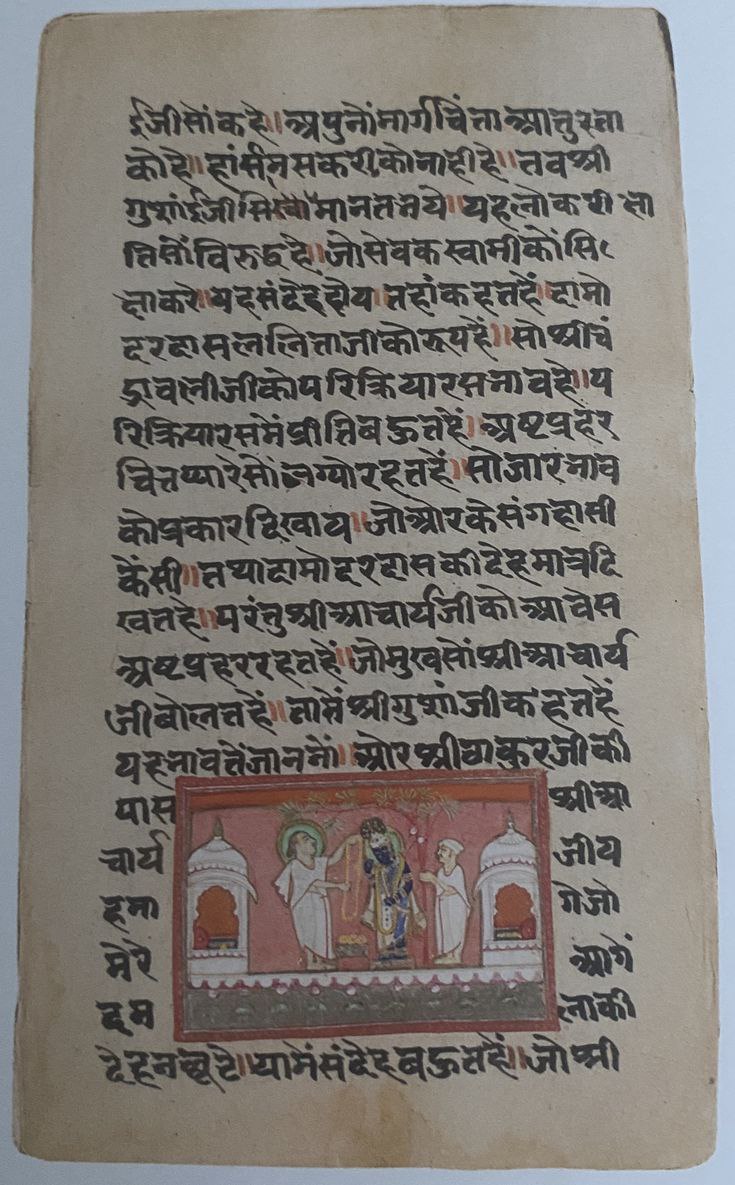 ईजीसोंकहे॥अपुनोंमार्गचिंताआतुरता
कोहे॥हांसनसकरीकोनाहीहे॥तवश्री
गुशांईजीसिखोमानतनये॥यहलोकरीसो
तिसोंविरुद्धहे॥जोसेवकस्वामीकोंसि
क्षाकरे॥यहसंदेहहोय॥तहांकहतहें॥दामो
दरदासललिताजीकोरूपहें॥सोश्रीचं
द्रावलीजीकोपरिक्रियारसनावहे॥प
रिक्रियारसमेंप्रीतिबहुतहें॥अष्टप्रहर
चितप्यारेसोंलग्योरहतहें॥सोजारनाव
कोप्रकारदिखाय॥जोओरकेसंगहासी
केंसी॥तथादामोदरदासकीदेहमात्रदि
खतहे॥परंतुश्रीआचार्यजीकोआवेस
अष्टप्रहररहतहें॥जोमुखसोंश्रीआचार्य
जीबोलतहें॥तातेंश्रीगुशांजीकहतहें
यहनावतेंजाननों॥ओरश्रीठाकुरजीकी
पास श्रीआ
चार्य जीय
हमा गेजो
मेरे आगें
हम नाकी
देहनछूटे॥यामेंसंदेहबहुतहें॥जोश्री